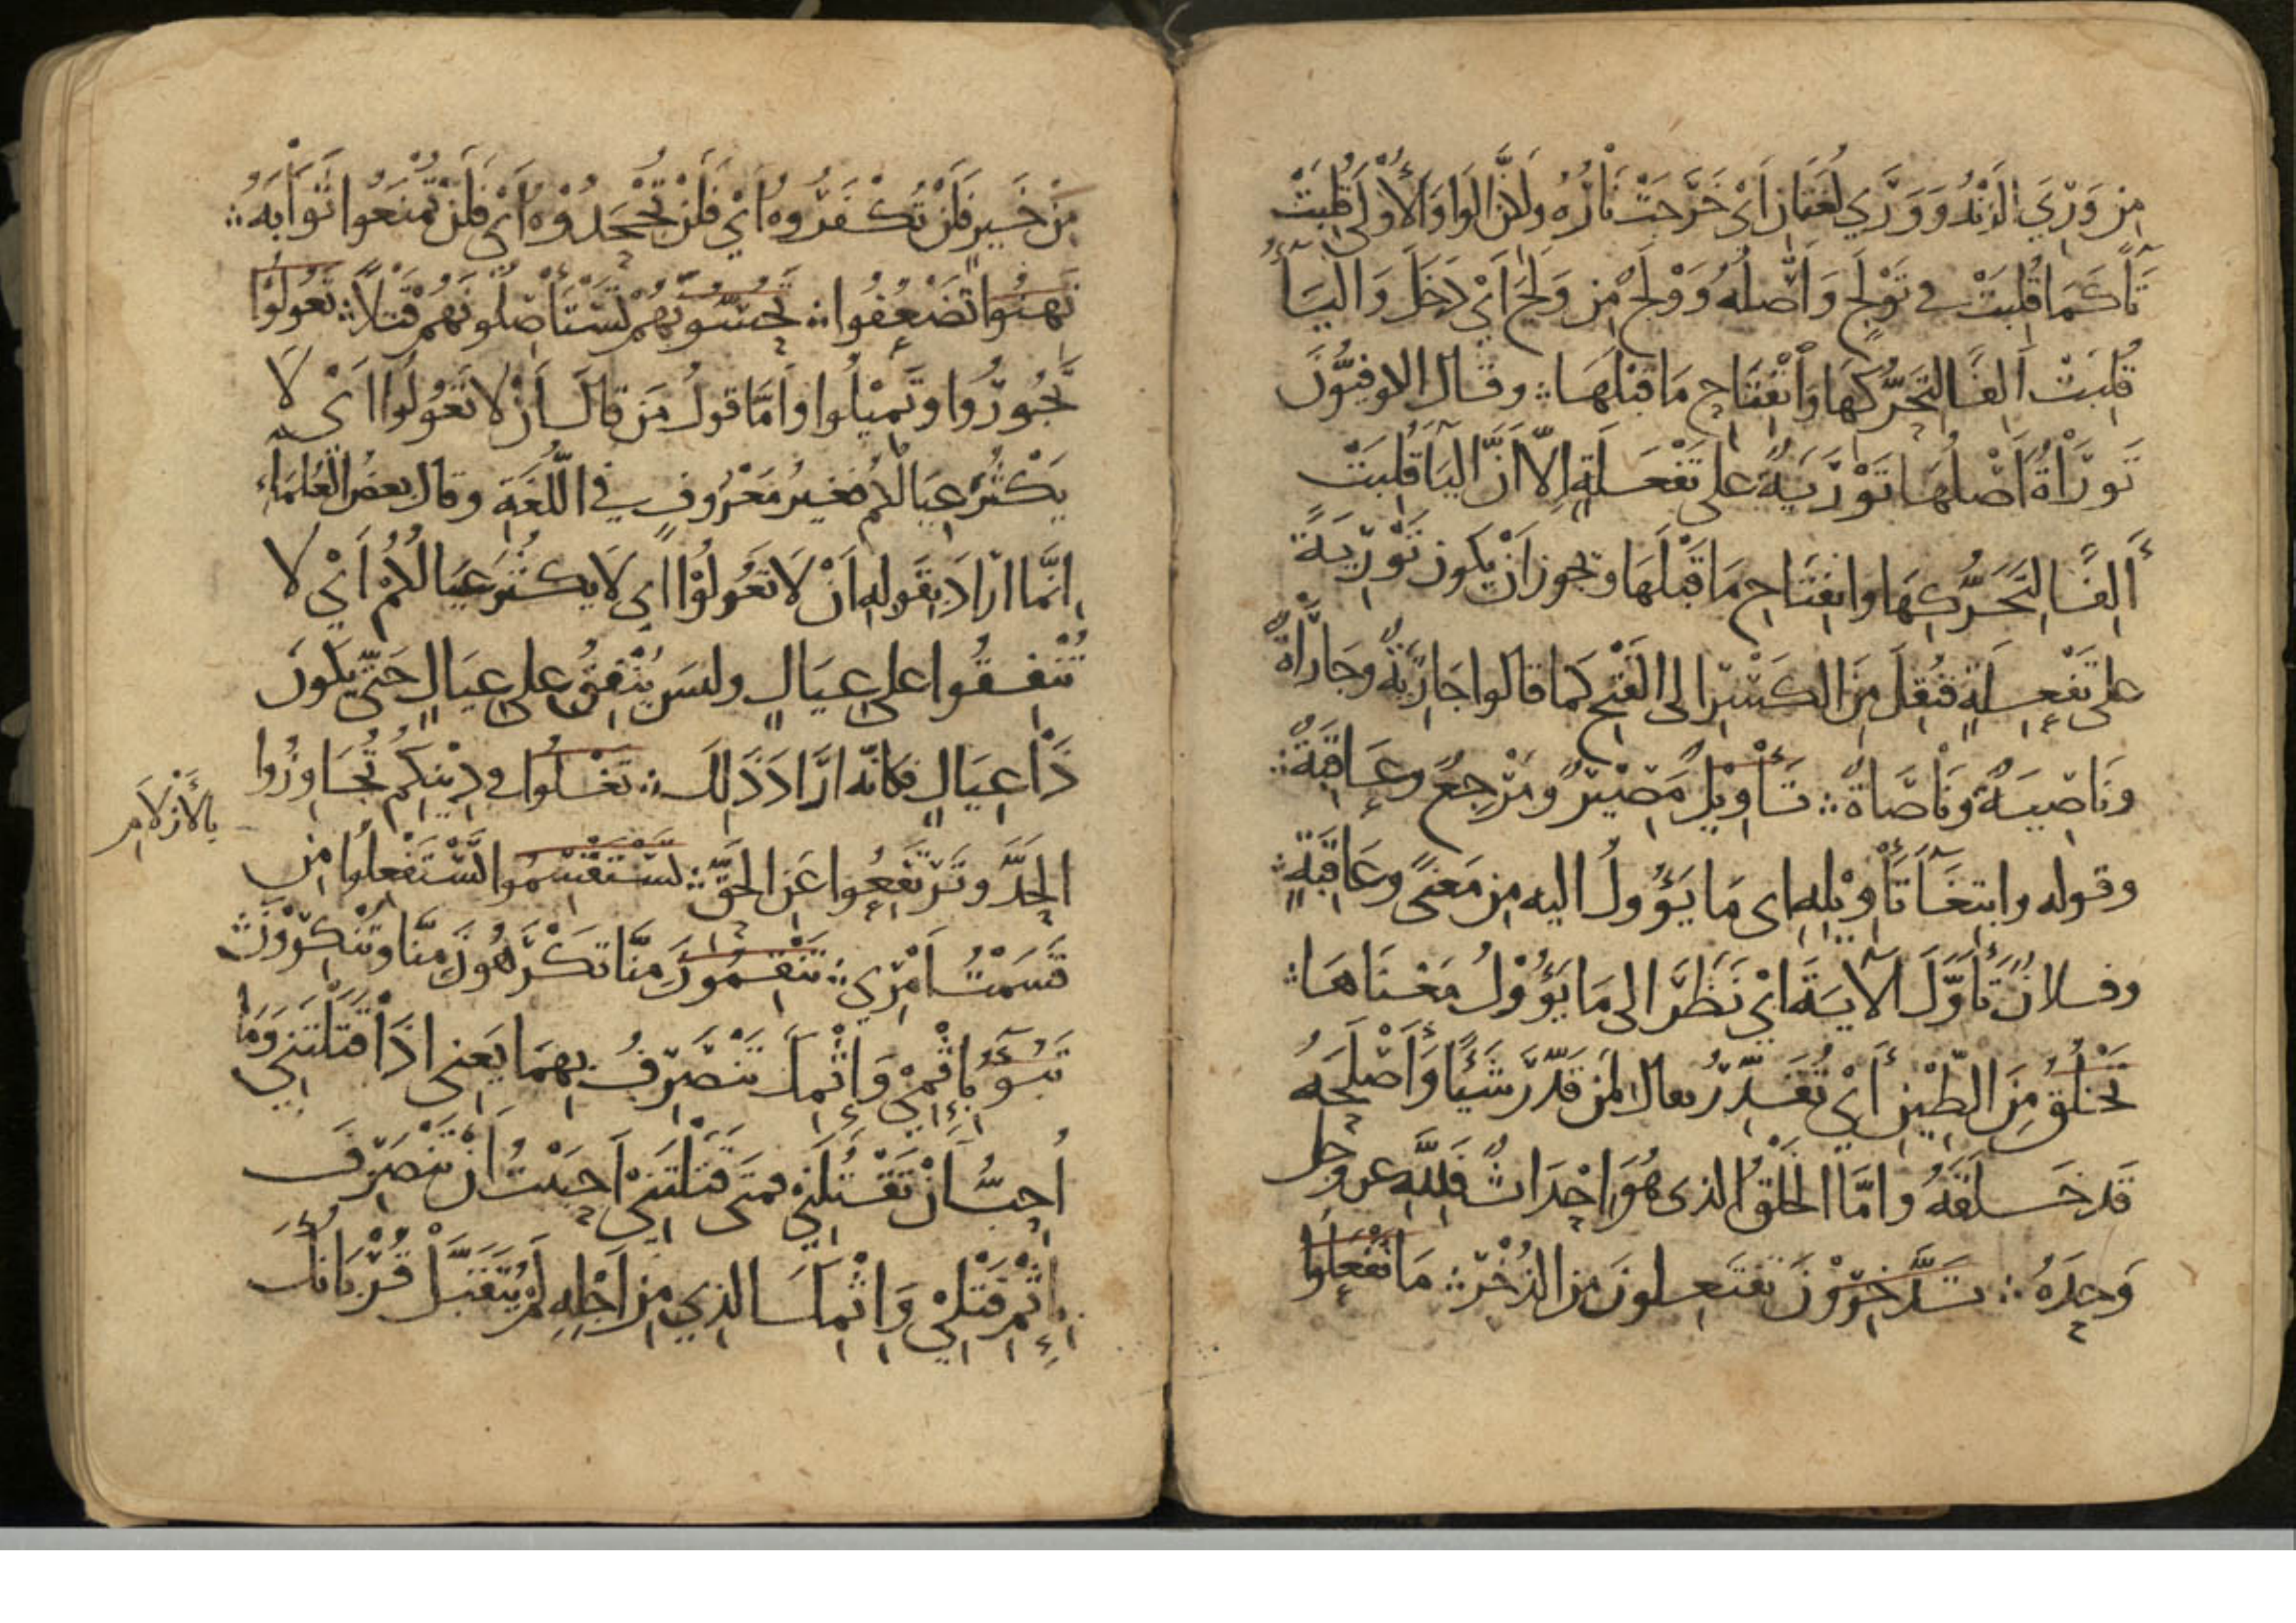 مِن وَرِيَ الزَنْدُ وَوَرَى لُغَتَانِ اَىْ خَرَجَتْ نَارُهُ ولكنَّ الوَاوَ الأُولَى قُلِبَتْ
تَآءً كَمَا قُلِبَتْ في تَوْلَجٍ وَاَصْلُهُ وَوْلَجٌ مِن وَلَجَ اَىْ دَخَلَ وَاليَآءُ
قُلِبَتْ اَلِفًا لِتَحَرُّكِهَا وَانْفِتَاحِ مَا قَبْلَهَا ؞ وقَال الاوفيّونَ
تَورَاةٌ اَصْلُهَا تَوْرَيَةٌ على تَفْعَلَةٍ اِلّا اَنَّ اليَآ قُلِبَتْ
أَلِفًا لِتَحَرُّكِهَا وانفِتَاحِ مَا قَبْلَهَا وتجوز اَنْ يكون تَوْرِيَةً
على تَفْعِلَةٍ فنُقِلَ مِنَ الكَسْرِ الى الفَتْحِ كما قالوا جَارِيَةٌ وجَارَاةٌ
ونَاصِيَةٌ ونَاصَاةٌ ؞ تَأوِيْلٌ مَصِيْرٌ ومَرْجِعٌ وعَاقِبَةٌ ؞
وقوله وابتغَآ تَأوِيْلِهِ اى مَا يَؤُولُ اليه مِن مَعنىً وعَاقِبَةٍ ؞
وفلانٌ تَأَوَّلَ الآيَةَ اَىْ نَظَرَ الى مَا يَؤُوْلُ مَعْنَاهَا ؞
تَخْلُقُ مِنَ الطِّيْنِ أَىْ تُقَدِّرُ يقال لمَن قَدَّرَ شَيْئًا وَأَصْلَحَهُ
قَد خَلَقَهُ وامَّا الخَلْقُ الذى هُوَ اِحْدَاثٌ فَلِلّهِ عز وجل
وَحدَهُ ؞ تَدَّخِرُوْنَ تَفتَعِلونَ مِن الذُخْرِ ؞ مَا تَفْعَلُوا
مِنْ خَيرٍ فَلَنْ تُكْفَرُوهُ اَيْ فَلَنْ تُجْحَدُوْهُ اَىْ فَلَنْ تُمْنَعُوا ثَوَابَهُ ؞
تَهِنُوا تَضْعُفُوا ؞ تَحُسُّونَهُمْ تَسْتَأْصِلُونَهُمْ قَتْلاً ؞ تَعُولُوْا
تَجُورُوا وتَمِيْلُوا وامَّا قولُ مَن قالَ اَنْ لا تَعُولُوا اَىْ لَا
يَكْثُرَ عِيَالُكُم فغيرُ مَعْرُوفٍ في اللُّغَةِ وقال بعضُ العُلمَاءِ
اِنَّما ارَادَ بِقَولِهِ اَنْ لَا تَعُولُوْا اى لَا يكْثُرَ عِيَالُكُمْ اَىْ لا
تُنْفِقُوا على عِيَالٍ وليسَ يُنْفِقُ على عِيَالٍ حَتّى يَكُونَ
ذَا عِيَالٍ فكانّه ارَادَ ذَلِكَ ؞ تَغْلُوا في دِيْنِكُمْ تُجَاوِزُوا
الحَدَّ وتَرتَفِعُوا عَنِ الحَقِّ ؞ تَسْتَقْسِمُوا تَسْتَفْعِلُوا مِن
بِالأَزْلَامِ
قَسَمْتُ اَمْرِي ؞ تَنْقِمُونَ مِنَّا تَكْرَهُونَ مِنَّا وتُنْكِرُوْنَ ؞
تَبُوءَ بِاِثْمِيْ وَاِثْمِكَ تَنْصَرِفُ بِهِمَا يَعنى اذَا قَتَلْتَنِي وَمَا
اُحِبُّ اَنْ تَقْتُلَنِيْ فمتى قَتَلْتَنِيْ اَحبَبْتُ اَنْ تَنْصَرِفَ
بِاِثْمِ قَتْلِيْ وَاثْمِكَ الذِي مِن اَجْلِهِ لَمْ يُتَقَبَّلْ قُرْبَانُكَ